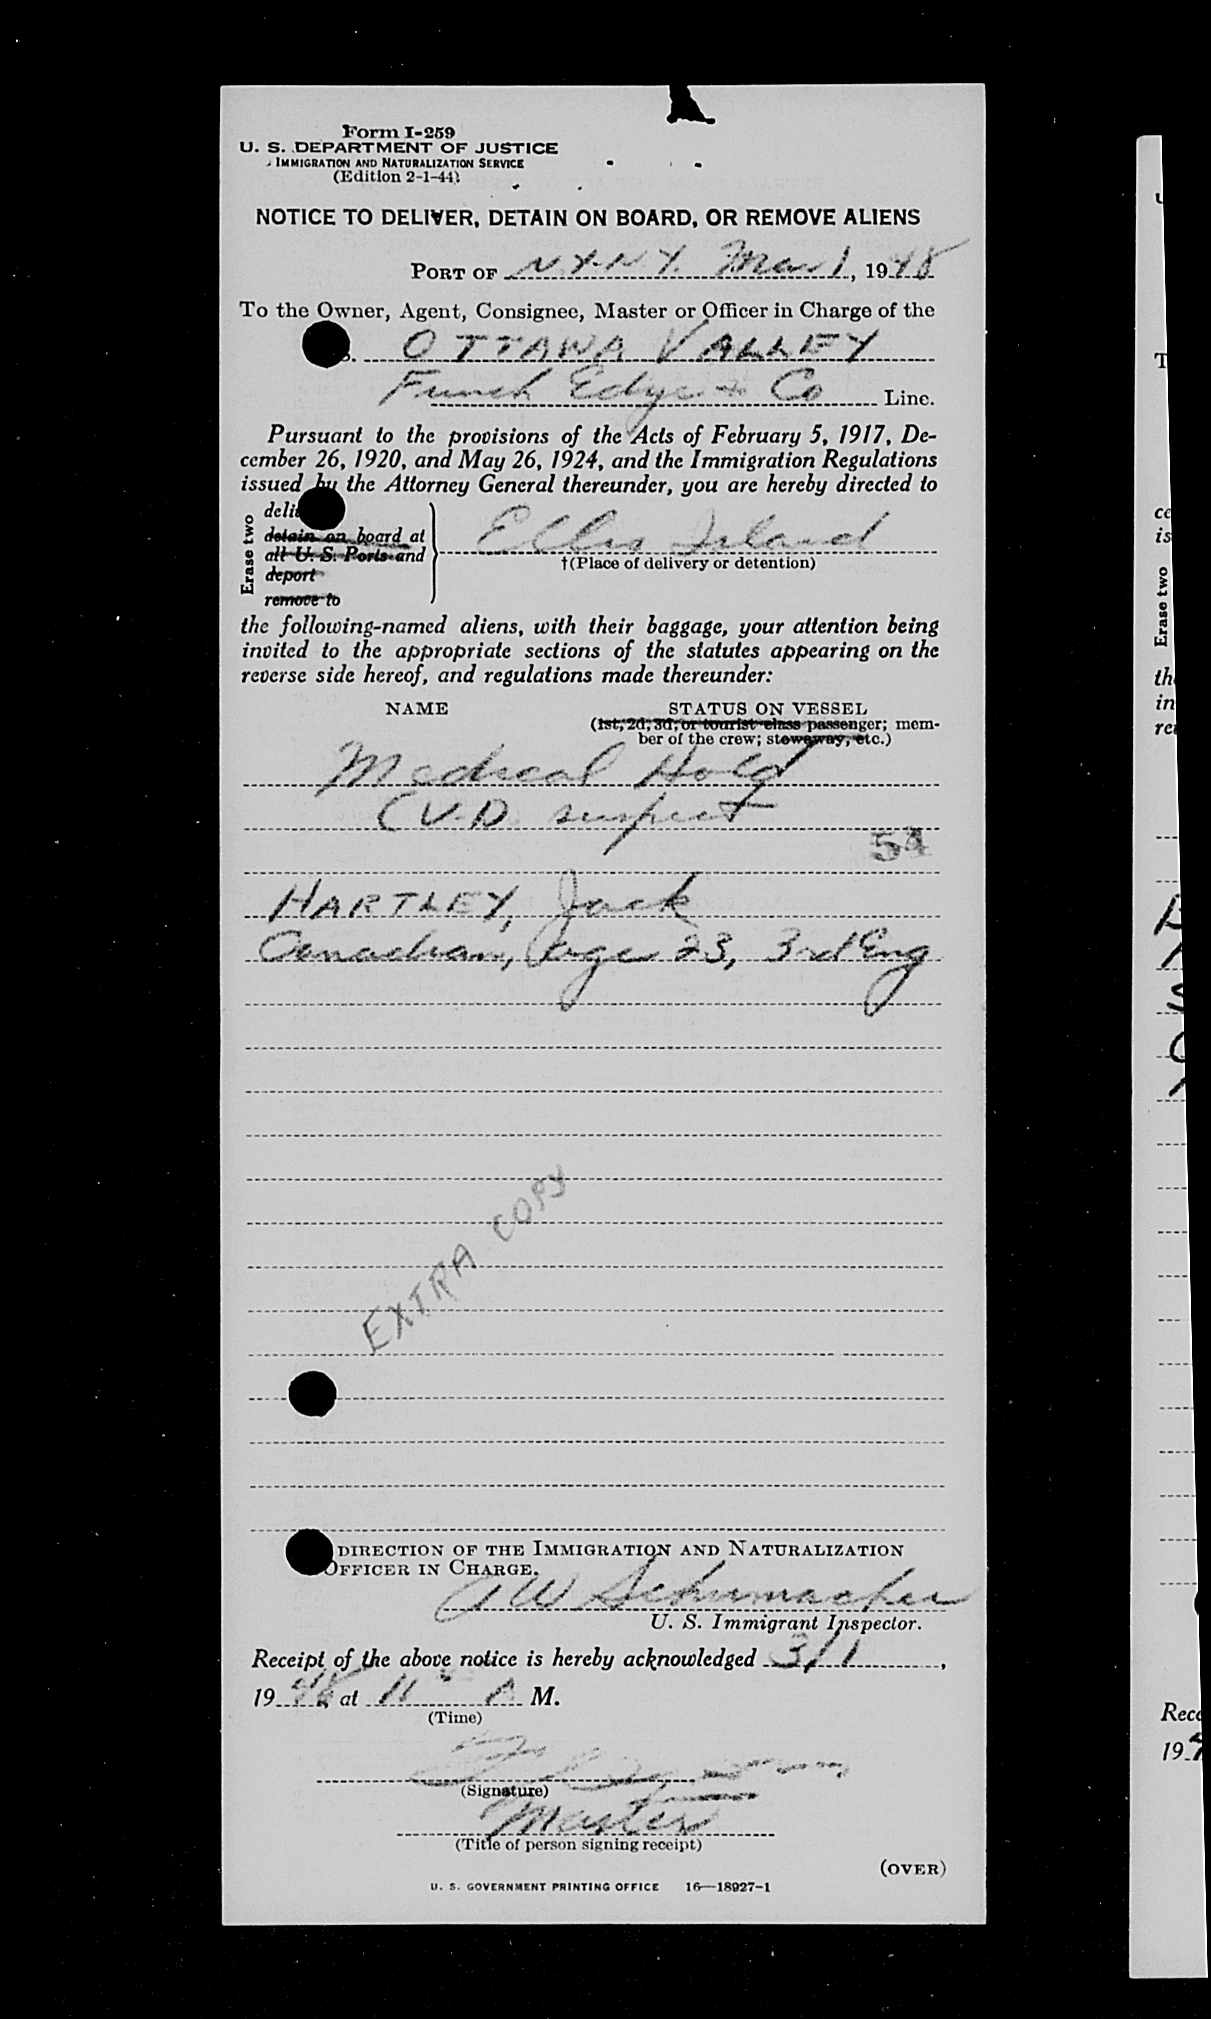 Form I-259
U. S. DEPARTMENT OF JUSTICE
IMMIGRATION AND NATURALIZATION SERVICE
(Edition 2-1-44)
NOTICE TO DELIVER, DETAIN ON BOARD, OR REMOVE ALIENS
PORT OF N.Y. N.Y. Mar 1, 1948
To the Owner, Agent, Consignee, Master or Officer in Charge of the
S. OTTAWA VALLEY
Funch Edye & Co Line.
Pursuant to the provisions of the Acts of February 5, 1917, De-
cember 26, 1920, and May 26, 1924, and the Immigration Regulations
issued by the Attorney General thereunder, you are hereby directed to
Erase two
deli
detain on board at
all U. S. Ports and
deport
remove to
Ellis Island
†(Place of delivery or detention)
the following-named aliens, with their baggage, your attention being
invited to the appropriate sections of the statutes appearing on the
reverse side hereof, and regulations made thereunder:
NAME STATUS ON VESSEL
(1st, 2d, 3d, or tourist class passenger; mem-
ber of the crew; stowaway, etc.)
Medical Hold
(V.D. suspect
54
HARTLEY, Jack
Canadian, age 23, 3rd Eng
EXTRA COPY
DIRECTION OF THE IMMIGRATION AND NATURALIZATION
OFFICER IN CHARGE.
A W Schumacher
U. S. Immigrant Inspector.
Receipt of the above notice is hereby acknowledged 3/1,
1948 at 11 A M.
(Time)
(Signature)
Master
(Title of person signing receipt)
(OVER)
U. S. GOVERNMENT PRINTING OFFICE 16—18927-1